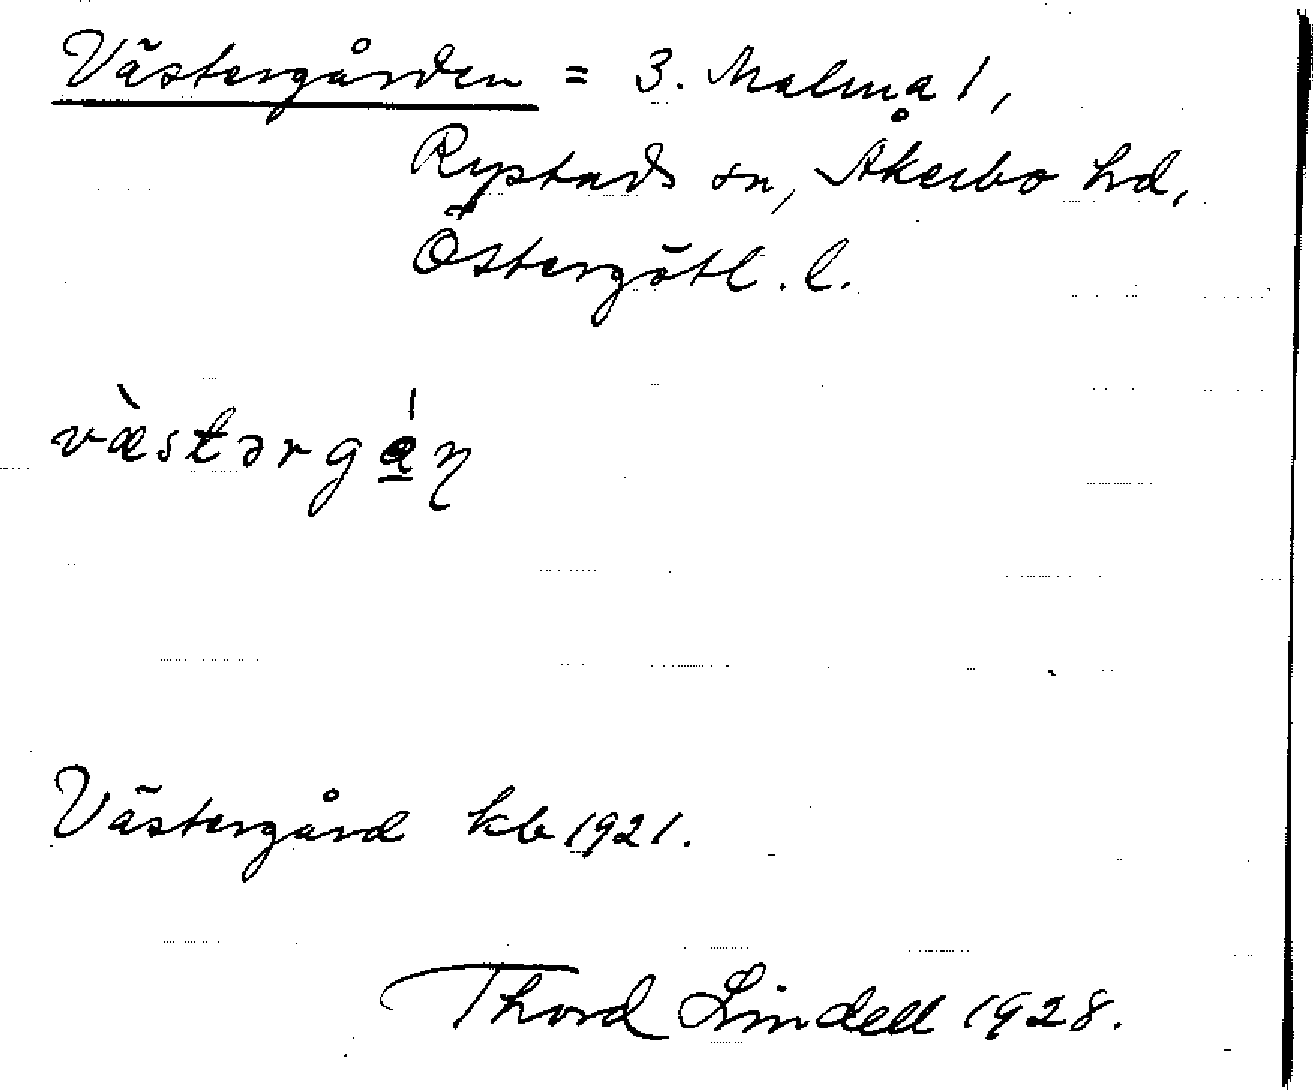 Västergården = 3. Malma 1,
Rystads sn, Åkerbo hd,
Östergötl. l.
væ̀stərgá̱ꞃ
Västergård kb 1921.
Thord Lindell 1928.